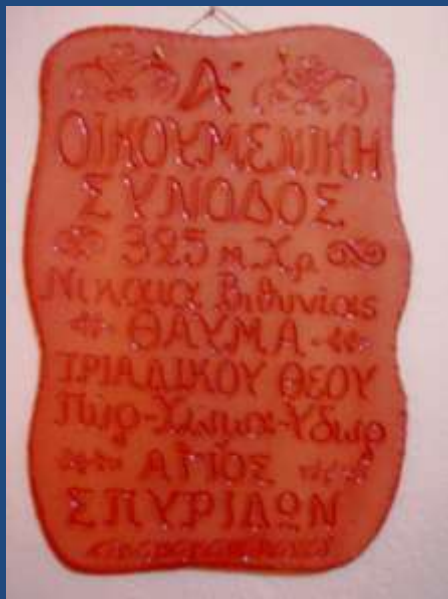 Α΄
ΟΙΚΟΥΜΕΝΙΚΗ
ΣΥΝΟΔΟΣ
325 μ Χρ
Νικαια Βιθυνίας
ΘΑΥΜΑ
ΤΡΙΑΔΙΚΟΥ ΘΕΟΥ
Πύρ-Χώμα-Ύδωρ
ΑΓΙΟΣ
ΣΠΥΡΙΔΩΝ